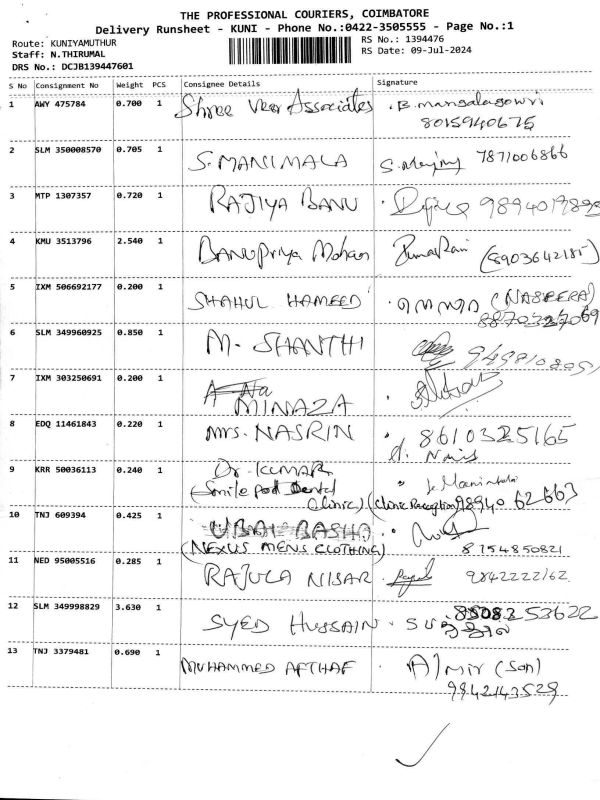 THE PROFESSIONAL COURIERS, COIMBATORE
Delivery Runsheet - KUNI - Phone No.:0422-3505555 - Page No.:1
Route: KUNIYAMUTHUR RS No.: 1394476
Staff: N.THIRUMAL RS Date: 09-Jul-2024
DRS No.: DCJB139447601
S No Consignment No Weight PCS Consignee Details Signature
1 AWY 475784 0.700 1 Shree Veer Associates B. mangalagowri
8015940675
2 SLM 350008570 0.705 1 S. MANIMALA 7871006866
3 MTP 1307357 0.720 1 RAJIYA BANU
4 KMU 3513796 2.540 1 BANUPriya Mohan (8903642185)
5 IXM 506692177 0.200 1 SHAHUL HAMEED (NASEERA)
6 SLM 349960925 0.850 1 M. SHANTHI
7 IXM 303250691 0.200 1
MINAZA
8 EDQ 11461843 0.220 1 Mrs. NASRIN 8610325165
9 KRR 50036113 0.240 1 Dr. KUMAR
(Smile pod Dental
Clinic) (Clinic Reception) 98940 62663
10 TNJ 609394 0.425 1 UBAI BASHA
(NEXUS MENS CLOTHING) 8754850821
11 NED 95005516 0.285 1 RAJULA NISAR 9842222162
12 SLM 349998829 3.630 1 SYED HUSSAIN
13 TNJ 3379481 0.690 1 MUHAMMED AFTHAF Almir (Son)
9842143529